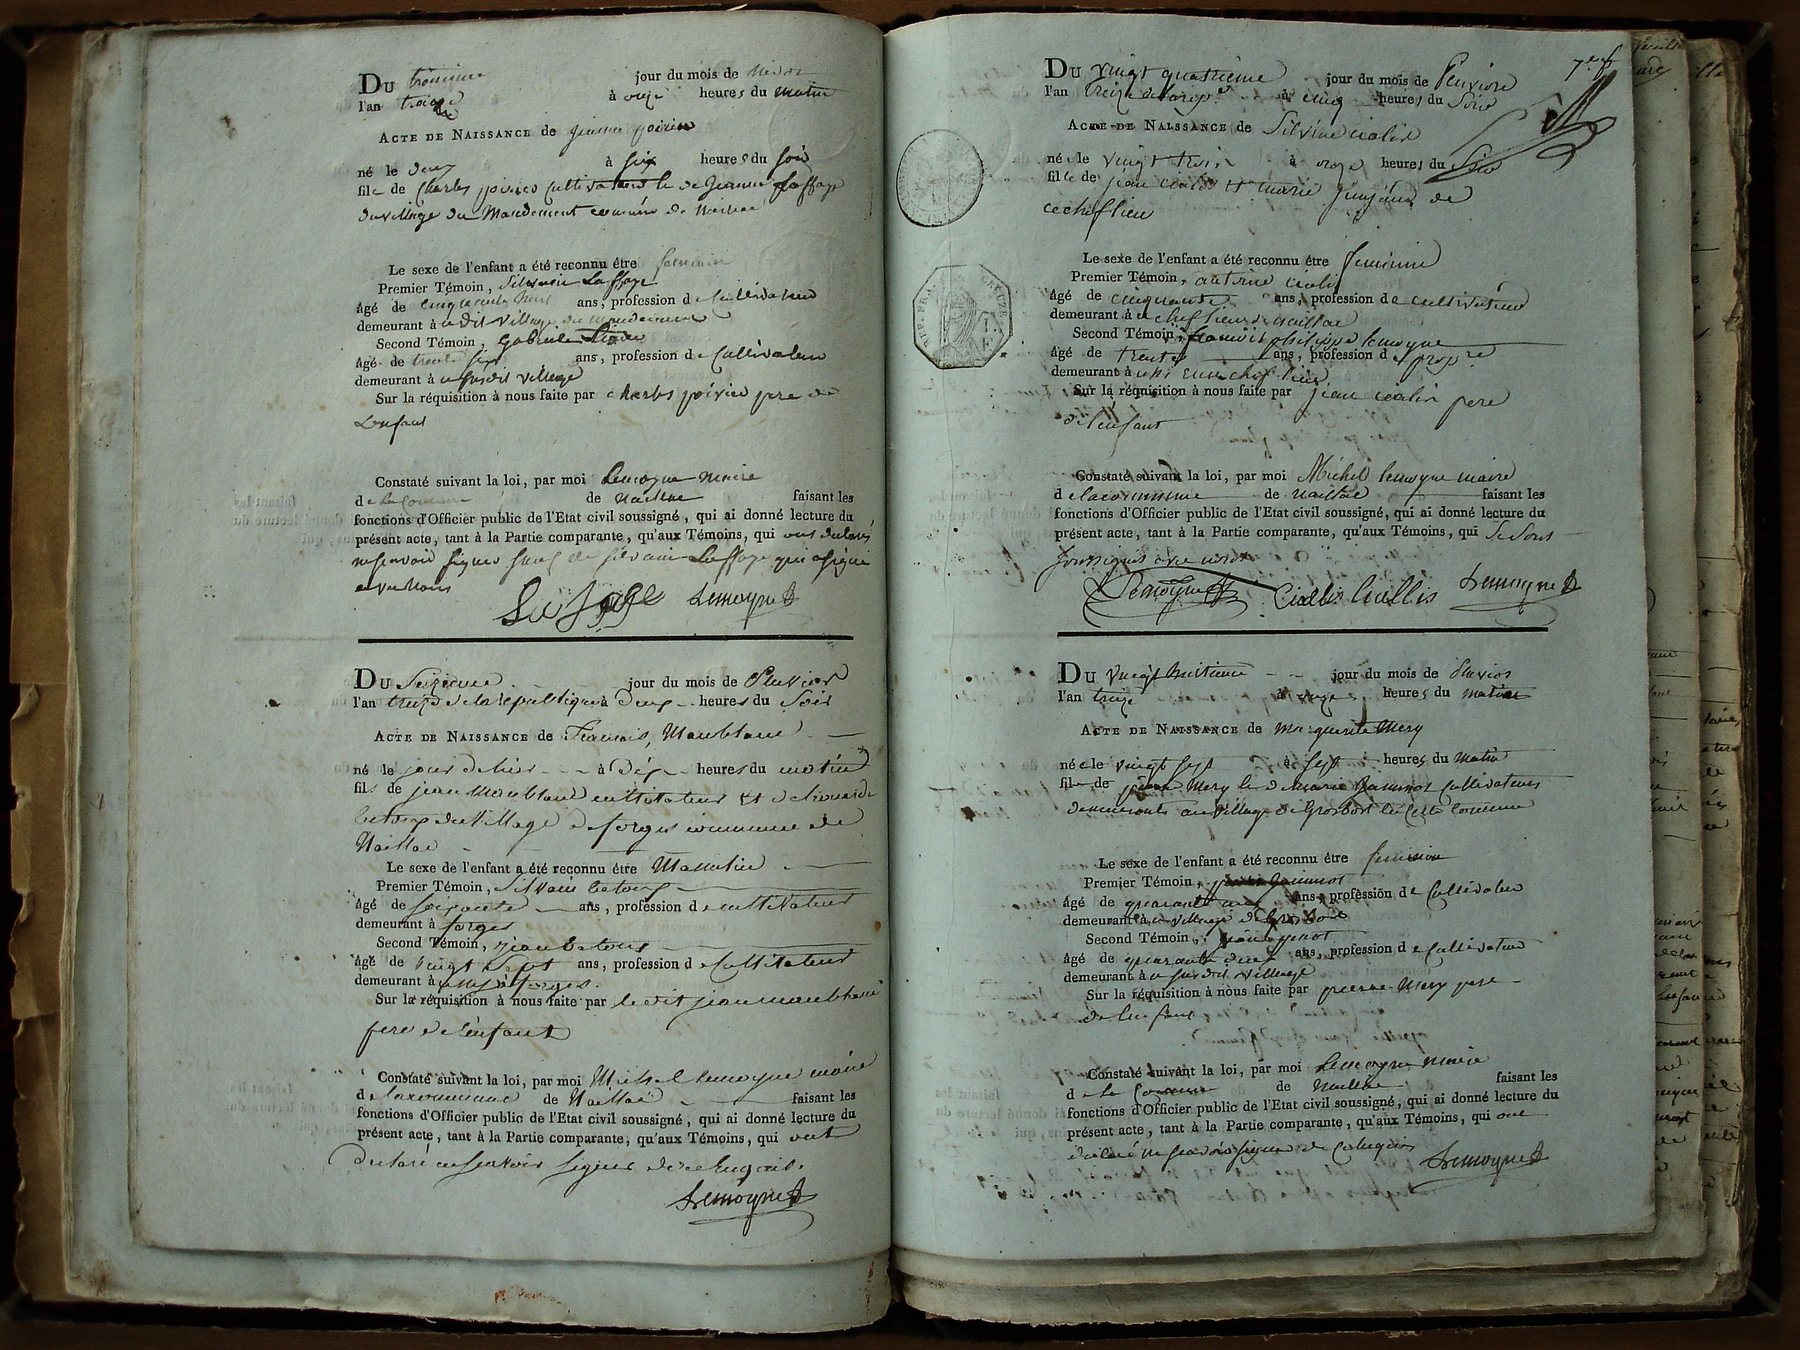 Du troisième jour du mois de nivos
l'an treize à onze heures du matin
Acte de Naissance de jeanne poirier
né le deux à six heures du soir
fil de Charles poirier Cultivateur de jeanne Laffage
du village du Mandement commune de Naillac
Le sexe de l'enfant a été reconnu être feminin
Premier Témoin, Silvain Laffage
âgé de cinquante huit ans, profession de Cultivateur
demeurant à u dit village du mandement
Second Témoin, Gabriel
âgé de trente six ans, profession de Cultivateur
demeurant à u susdit village
Sur la réquisition à nous faite par charles poirier pere de
L'enfant
Constaté suivant la loi, par moi Lemoyne maire
de la Commune de Naillac faisant les
fonctions d'Officier public de l'Etat civil soussigné, qui ai donné lecture du
présent acte, tant à la Partie comparante, qu'aux Témoins, qui ont declaré
ne savoir signer sauf de silvain Laffage qui a signé
avec nous
Lafage Lemoyne
Du Seizieme jour du mois de Pluviose
l'an treize de la republique à Deux heures du Soir
Acte de Naissance de François, Maublanc
né le jour d'hier à Dix heures du matin
fils de jean Maublanc cultivateur et de
betoux du Village de forges commune de
Naillac
Le sexe de l'enfant a été reconnu être Masculin
Premier Témoin, Silvain betoux
âgé de soixante ans, profession de cultivateur
demeurant à forges
Second Témoin, jean betoux
âgé de vingt Sept ans, profession de Cultivateur
demeurant à ussi à forges.
Sur la réquisition à nous faite par le dit jean maublanc
pere de l'enfant
Constaté suivant la loi, par moi Michel Lemoyne maire
de la commune de Naillac faisant les
fonctions d'Officier public de l'Etat civil soussigné, qui ai donné lecture du
présent acte, tant à la Partie comparante, qu'aux Témoins, qui ont
declaré ne savoir signer de ce Enquis.
Lemoyne
7e f
Du vingt quatrieme jour du mois de Pluviose
l'an treize de la rep. à cinq heures du Soir
Acte de Naissance de Silvine cialis
née le vingt trois à onze heures du Soir
fille de jean cialis et marie de
ce chef lieu
Le sexe de l'enfant a été reconnu être feminine
Premier Témoin, antoine cialis
âgé de cinquante ans, profession de cultivateur
demeurant à u chef lieu de naillac
Second Témoin, francois philippe lemoyne
âgé de trente ans, profession de propre
demeurant à ussi en ce chef lieu
Sur la réquisition à nous faite par jean cialis pere
de l'enfant
Constaté suivant la loi, par moi Michel lemoyne maire
de la commune de naillac faisant les
fonctions d'Officier public de l'Etat civil soussigné, qui ai donné lecture du
présent acte, tant à la Partie comparante, qu'aux Témoins, qui se sont
soussignés avec nous
Lemoyne Lemoyne
REP. FRA. CREUZE
Du vingt huitieme jour du mois de pluvios
l'an treize à onze heures du matin
Acte de Naissance de Marguerite Mery
née le vingt sept à sept heures du Matin
fille de pierre Mery de marie Cultivateurs
demeurants au village de de Cette Commune
Le sexe de l'enfant a été reconnu être feminin
Premier Témoin,
âgé de quarante ans, profession de Cultivateur
demeurant à u village de
Second Témoin,
âgé de quarante deux ans, profession de Cultivateur
demeurant à u susdit village
Sur la réquisition à nous faite par pierre Mery pere
de l'enfant
Constaté suivant la loi, par moi Lemoyne maire
de la Commune de Naillac faisant les
fonctions d'Officier public de l'Etat civil soussigné, qui ai donné lecture du
présent acte, tant à la Partie comparante, qu'aux Témoins, qui ont
declaré ne savoir signer de Ce enquis
Lemoyne